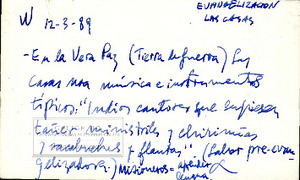 EVANGELIZACION
LAS CASAS
W 12-3-89
- En la Vera Paz (Tierra de guerra) Las
Casas usa música e instrumentos
típicos: "Indios cantores que supiesen
tañer ministriles y chirimías
y sacabuches y flautas" (Labor pre-evan-
gelizadora.) Misioneros =